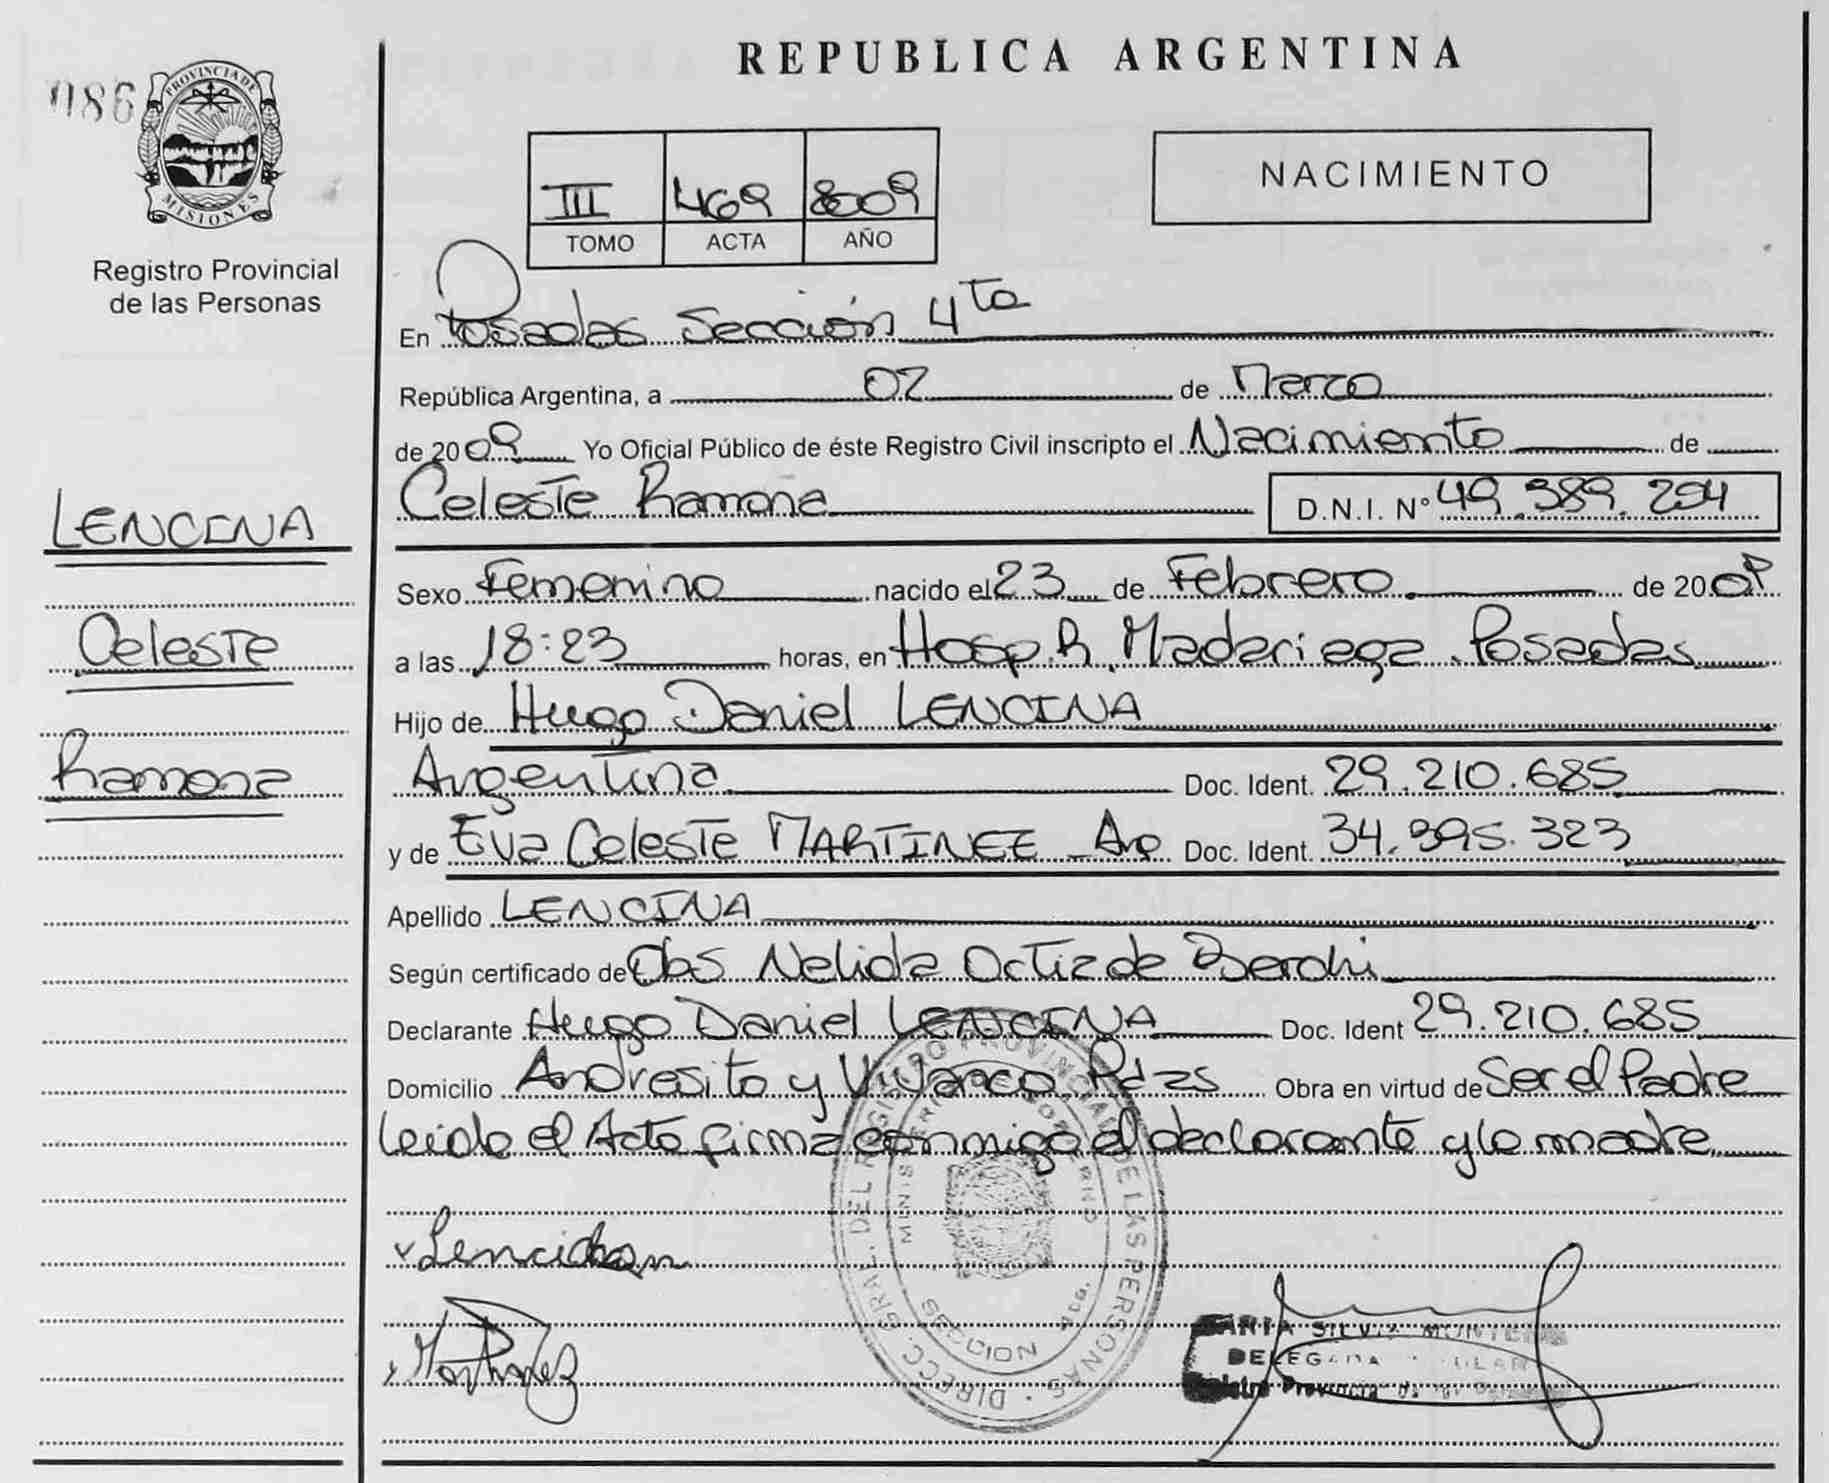 REPUBLICA ARGENTINA
086
PROVINCIA DE MISIONES
Registro Provincial
de las Personas
III 469 2009
TOMO ACTA AÑO
NACIMIENTO
En Posadas Sección 4ta
República Argentina, a 02 de Marzo
de 2009 Yo Oficial Público de éste Registro Civil inscripto el Nacimiento de
Celeste Ramona D.N.I. N° 49.389.294
LENCINA
Celeste
Ramona
Sexo Femenino nacido el 23 de Febrero de 2009
a las 18:23 horas, en Hosp. R. Madariaga Posadas
Hijo de Hugo Daniel LENCINA
Argentina Doc. Ident. 29.210.685
y de Eva Celeste MARTINEZ Arg Doc. Ident. 34.395.323
Apellido LENCINA
Según certificado de Obs Nelida Ortiz de
Declarante Hugo Daniel LENCINA Doc. Ident 29.210.685
Domicilio Andresito y Vivanco Pdas Obra en virtud de Ser el Padre
leido el Acta firma conmigo el declarante y la madre
DIRECC. GRAL. DEL REGISTRO PROVINCIAL DE LAS PERSONAS
SECCION 4ta.
Martinez
MARIA SILVIA
DELEGADA TITULAR
Registro Provincial de las Personas